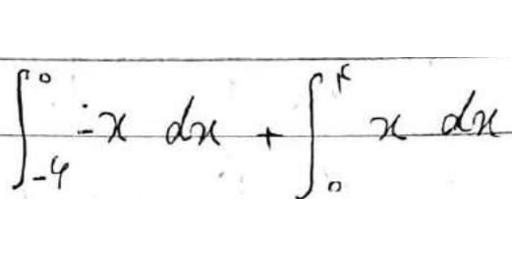 \int_{-4}^{0} -x \, dx + \int_{0}^{4} x \, dx